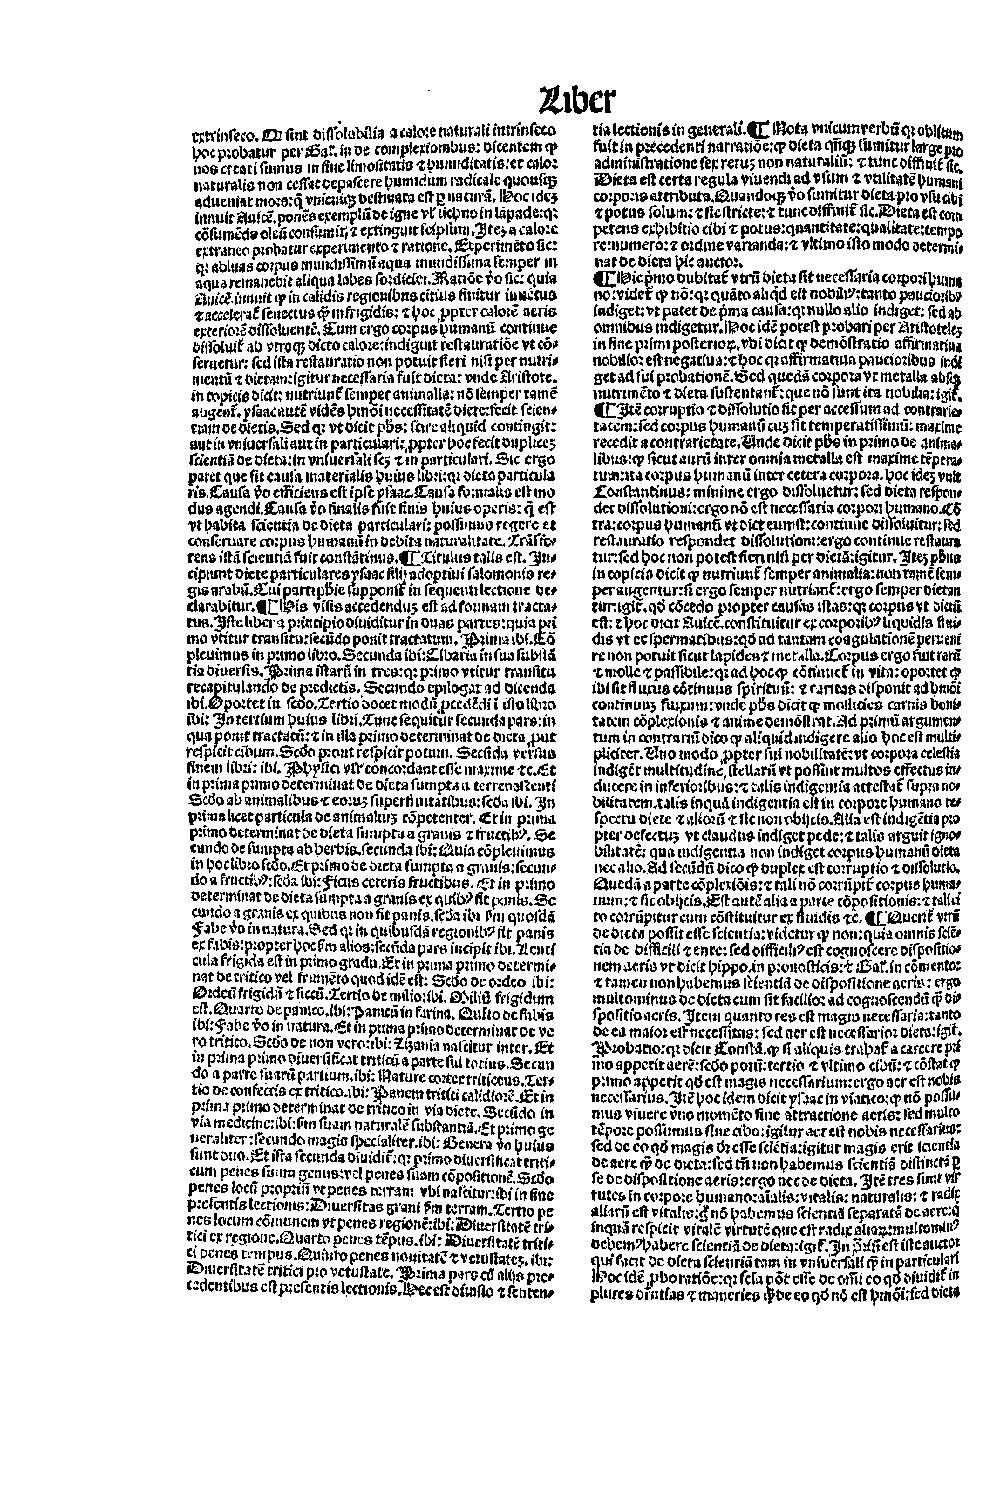 Liber
extrinseco. Q sint dissolubilia a calore naturali intrinseco
hoc probatur per Gal. in de complexionibus: dicentem qꝫ
nos creati sumus in fine limositatis ⁊ humiditatis: et calor
naturalis non cessat depascere humidum radicale quousqꝫ
adueniat mors: q̄ vnicuiqꝫ destinata est ꝑ naturā. Hoc idēꝫ
innuit Auicē. ponēs exemplū de igne vl' lichno in lāpade: qꝛ
cōsumēdo oleū consumit̄ ⁊ extinguit seipsum. Iteꝫ a calore
extraneo probatur experimento ⁊ ratione. Experimēto sic:
qꝛ abluas corpus mundissimū aqua mundissima semper in
aqua remanebit aliqua labes sordiciei. Ratiōe v̄o sic. quia
Auicē. innuit ꝙ in calidis regionibus citius finitur iuuētus
⁊ accelerat̄ senectus ꝙ̄ in frigidis: ⁊ hoc ꝓpter calorē aeris
exteriorē dissoluentē. Cum ergo corpus humanū continue
dissoluit̄ ab vtroqꝫ dicto calore: indiguit restauratiōe vt cō-
seruetur: sed ista restauratio non potuit fieri nisi per nutri-
mentū ⁊ dietam: igitur necessaria fuit dieta: vnde Aristote.
in topicis dicit: nutriunt̄ semper animalia: nō semper tamē
augent̄. ysaac autē vidēs hmōi necessitatē diete: fecit scien-
tiam de dietis. Sed qꝛ vt dicit phs: scire aliquid contingit:
aut in vniuersali aut in particulari: ꝓpter hoc fecit duplicēꝫ
scientiā de dieta: in vniuersali scꝫ ⁊ in particulari. Sic ergo
patet que sit causa materialis huius libri: qꝛ dieta particula
ris. Causa v̄o efficiens est ipse ysaac. Causa formalis est mo
dus agendi. Causa v̄o finalis fuit finis huius operis: q̄ est
vt habita scientia de dieta particulari: possimus regere et
conseruare corpus humanū in debita naturalitate. Trāsfe-
rens istā scientiā fuit constātinus. ¶ Titulus talis est. In-
cipiunt diete particulares ysaac filij adoptiui salomonis re-
gis arabū. Cui̇ pars ph̄ie supponit̄ in sequenti lectione de-
clarabitur. ¶ His visis accedendum est ad formam tracta-
tus. Iste liber a principio diuiditur in duas partes: quia pri
mo vtitur transitu: secūdo ponit tractatum. Prima ibi. Cō
pleuimus in primo libro. Secunda ibi: Cibaria in sua substā
tia diuersis. Prima istarū in tres: qꝛ primo vtitur transitu
recapitulando de predictis. Secundo epilogat ad dicenda
ibi. Oportet in scdō. Tertio docet modū ꝓcedēdi ī isto libro
ibi: In tertium huius libri. Tunc sequitur secunda pars: in
qua ponit tractatū: ⁊ in illa primo determinat de dieta, put
respicit cibum. Scdō prout respicit potum. Secūda versus
finem libri: ibi. Physici vtr̄ concordant esse maxime ⁊c. Et
in prima primo determinat de dieta sumpta a terrenascenti
Scdo ab animalibus ⁊ eorum superfluitatibus: scda ibi. In
prima licet particula de animalibus cōpetenter. Et in prima
primo determinat de dieta sumpta a granis ⁊ fructibꝰ. Se
cundo de sumpta ab herbis. secunda ibi: Quia cōpleuimus
in hoc libro scdō. Et primo de dieta sumpta a granis: secun-
do a fructibꝰ: scda ibi: Ficus ceteris fructibus. Et in primo
determinat de dieta sumpta a granis ex quibꝰ fit panis. Se
cundo a granis ex quibus non fit panis. scda ibi. s̄m quosdā
Fabe v̄o in natura. Sed qꝛ in quibusdā regionibꝰ fit panis
ex fabis: propter hoc s̄m alios: secūda pars incipit ibi. Lenti
cula frigida est in primo gradu. Et in prima primo determi-
nat de tritico vel frumēto quod idē est: Scdō de ordeo ibi:
Ordeū frigidū ⁊ siccū. Tertio de milio: ibi. Miliū frigidum
est. Quarto de panico. ibi: Panicū in farina. Quīto de fabis
ibi: Fabe v̄o in natura. Et in prima primo determinat de ve
ro tritico. Scdō de non vero: ibi: Lizania nascitur inter. Et
in prima primo diuersificat triticū a parte sui totius. Secun
do a parte suarū partium. ibi: Nature cortex triticeus. Ter-
tio de confectis ex tritico. ibi: Panem tritici calidiorē. Et in
prima primo determinat de tritico in via diete. Secūdo in
via medicine: ibi: sin suam naturalē substantiā. Et primo ge
neraliter: secundo magis specialiter. ibi: Genera v̄o huius
sunt duo. Et ista secunda diuidit̄: qꝛ primo diuersificat triti-
cum penes suum genus: vel penes suam cōpositionē. Scdō
penes locū propriū vt penes terram vbi nascitur: ibi in fine
presentis lectionis: Diuersitas grani s̄m terram. Tertio pe
nes locum cōmunem vt penes regionē: ibi: Diuersitatē tri-
tici ex regione. Quarto penes tēpus. ibi: Diuersitatē tritic-
ci penes tempus. Quīto penes nouitatē ⁊ vetustateꝫ. ibi:
Diuersitatē tritici pro vetustate. Prima pars cū alijs pre-
cedentibus est presentis lectionis. Hec est diuisio ⁊ senten-
tia lectionis in generali. ¶ Nota vnicum verbū qꝛ oblitum
fuit in precedenti narratiōe: ꝙ dieta qn̄qꝫ sumitur large pro
administratione sex rerum non naturaliū: ⁊ tunc diffinit̄ sic.
Dieta est certa regula viuendi ad vsum ⁊ vtilitatē humani
corporis attributa. Quandoqꝫ v̄o sumitur dieta pro vsu cibi
⁊ potus solum: ⁊ sic stricte: ⁊ tunc diffinit̄ sic. Dieta est com
petens exhibitio cibi ⁊ potus: quantitate: qualitate: tempo
re: numero: ⁊ ordine varianda: ⁊ vltimo isto modo determi
nat de dieta hic auctor.
¶ Hic primo dubitat̄ vtrū dieta sit necessaria corpori huma
no: videt̄ ꝙ nō: qꝛ quāto aliqd est nobiliꝰ: tanto paucioribꝰ
indiget: vt patet de prima causa: qꝛ nullo alio indiget: sed ab
omnibus indigetur. Hoc idē potest probari per Aristotelem
in fine primi posterioꝝ, vbi dicit ꝙ demōstratio affirmatiua
nobilior est negatiua: ⁊ hoc qꝛ affirmatiua paucioribus indi
get ad sui probationē. Sed quedā corpora vt metalla absqꝫ
nutrimēto ⁊ dieta sustentant̄: que nō sunt ita nobilia: igit̄.
¶ Itē corruptio ⁊ dissolutio fit per accessum ad contrarie-
tatem: sed corpus humanū cum sit temperatissimū: maxime
recedit a contrarietate. Unde dicit phs in primo de anima-
libus: ꝙ sicut aurū inter omnia metalla est maxime tēpera-
tum: ita corpus humanū inter cetera corpora. hoc idē vult
Constantinus: minime ergo dissoluetur: sed dieta respon-
det dissolutioni: ergo non est necessaria corpori humano. Cō
tra: corpus humanū vt dictum est: continue dissoluitur: sed
restauratio respondet dissolutioni: ergo continue restaura
tur: sed hoc non potest fieri nisi per dietā: igitur. Iteꝫ phus
in topicis dicit ꝙ nutriunt̄ semper animalia: non tamē sem-
per augentur: si ergo semper nutriant̄: ergo semper dietan
tur: igit̄. qd̄ cōcedo propter causas istas: qꝛ corpus vt dictū
est: ⁊ hoc dicit Auicē. constituitur ex corporibꝰ liquidis flui-
dis vt ex spermatibus: qd̄ ad tantam coagulationē perueni
re non potuit sicut lapides ⁊ metalla. Corpus ergo fuit rarū
⁊ molle ⁊ passibile: qꝛ ad hoc ꝙ cōtinuet̄ in vita: oportet ꝙ
ibi sit fluxus cōtinuus spirituū: ⁊ raritas disponit ad hmōi
continuum fluxum: vnde phs dicit ꝙ mollicies carnis boni-
tatem cōplexionis ⁊ anime demōstrat. Ad primū argumen-
tum in contrariū dico ꝙ aliquid indigere alio hoc est multi-
pliciter. Uno modo ꝓpter sui nobilitatē: vt corpora celestia
indigēt multitudine stellarū vt possint multos effectus in-
ducere in inferioribus: ⁊ talis indigentia attestat̄ supra no-
bilitatem. talis inquā indigentia est in corpore humano re-
spectu diete ⁊ aliorū ⁊ sic non obijcis. Alia est indigētia pro
pter defectum: vt claudus indiget pede: ⁊ talis arguit igno-
bilitatē: qua indigentia non indiget corpus humanū dieta
nec alio. Ad secūdū dico ꝙ duplex est corruptio ⁊ dissolutio.
Quedā a parte cōplexiōis: ⁊ tali nō corrūpit̄ corpus huma-
num: ⁊ sic obijcis. Est autē alia a parte cōpositionis: ⁊ tali
to corrūpitur cum cōstituitur ex fluidis ⁊c. ¶ Querit̄ vtrū
de dieta possit esse scientia: videtur ꝙ non: quia omnis sciē-
tia de difficili ⁊ ente: sed difficiliꝰ est cognoscere dispositio-
nem aeris vt dicit hippo. in pronosticis: ⁊ Gal. in cōmento:
⁊ tamen non habemus scientiā de dispositione aeris: ergo
multominus de dieta cum sit facilior ad cognoscendū ꝙ̄ di-
spositio aeris. Item quanto res est magis necessaria: tanto
de ea maior est necessitas: sed aer est necessarior dieta: igit̄.
Probatio: qꝛ dicit Constā. ꝙ si aliquis trahat̄ a carcere pri
mo appetit aerē: scdō potū: tertio ⁊ vltimo cibū: ⁊ cōstat ꝙ
primo appetit qd̄ est magis necessarium: ergo aer est nobis
necessarius. Itē hoc idem dicit ysaac in viatico: ꝙ nō possu-
mus viuere vno momēto sine attractione aeris: sed multo
tēpore possumus sine cibo: igitur aer est nobis necessarius:
sed de eo qd̄ magis d̄z esse sciētia: igitur magis erit scientia
de aere ꝙ̄ de dieta: sed tn̄ non habemus scientiā distinctā ꝑ
se de dispositione aeris: ergo nec de dieta. Itē tres sunt vir
tutes in corpore humano: aīalis: vitalis: naturalis: ⁊ radix
aliarū est vitalis: sꝫ nō habemus scientiā separatē de aere: q̄
inquā respicit vitalē virtutē que est radix aliaꝝ: multominꝰ
debemꝰ habere scientiā de dieta: igit̄. In 𝔷riū est iste auctor
qui facit de dieta scientiā tam in vniuersali ꝙ̄ in particulari
Hoc idē ꝓbo ratiōe: qꝛ scīa pōt esse de omni eo qd̄ diuidit̄ in
plures dr̄ntias ⁊ maneries ꝙ̄ de eo qd̄ nō est hmōi: sed dieta